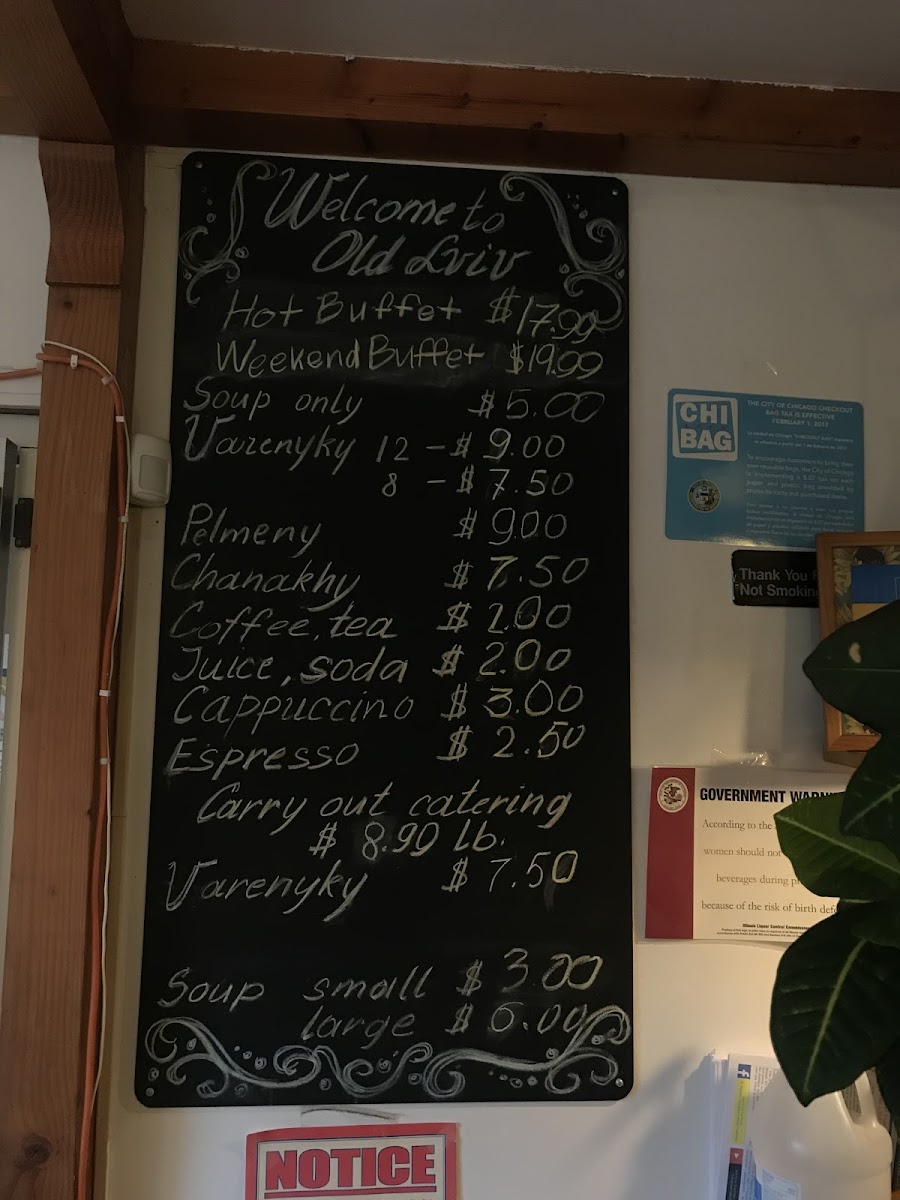 Welcome to
Old Lviv
Hot Buffet $17.99
Weekend Buffet $19.99
Soup only $5.00
Varenyky 12 - $ 9.00
8 - $ 7.50
Pelmeny $ 9.00
Chanakhy $ 7.50
Coffee, tea $ 2.00
Juice, soda $ 2.00
Cappuccino $ 3.00
Espresso $ 2.50
Carry out catering
$ 8.99 lb.
Varenyky $ 7.50
Soup small $ 3.00
large $ 6.00
CHI
BAG
THE CITY OF CHICAGO CHECKOUT
BAG TAX IS EFFECTIVE
FEBRUARY 1, 2017
To encourage customers to bring their
own reusable bags, the City of Chicago
is implementing a $.07 tax on each
paper and plastic bag
Thank You
Not Smoking
GOVERNMENT
According to the
women should not
beverages during
because of the risk of birth
NOTICE